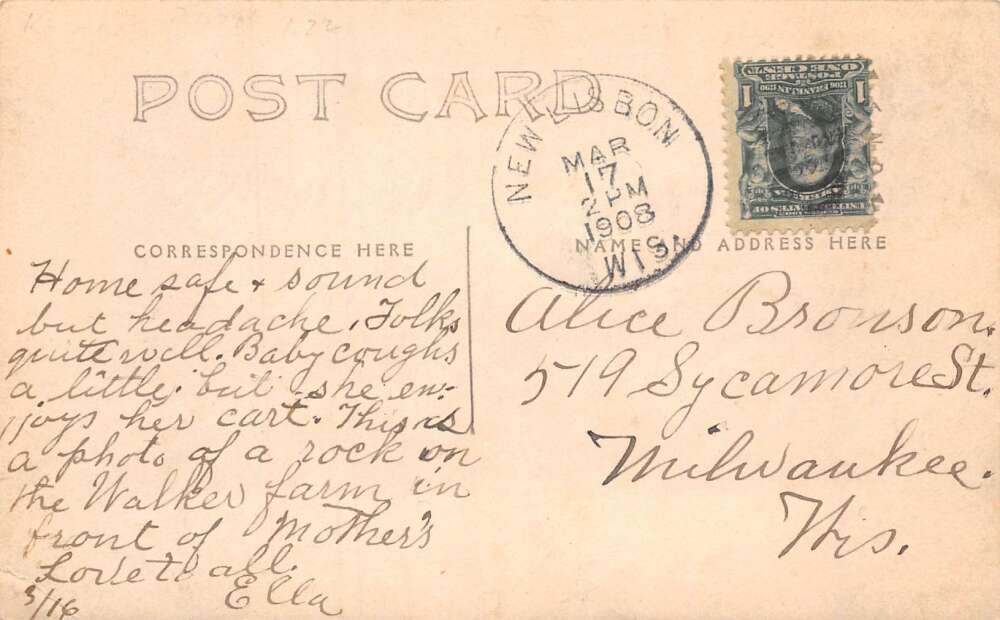 POST CARD
NEW LISBON
MAR
17
2 PM
1908
WIS.
CORRESPONDENCE HERE
NAME AND ADDRESS HERE
Home safe + sound
but headache. Folks
quite well. Baby coughs
a little but she en-
joys her cart. This is
a photo of a rock on
the Walker farm in
front of Mother's
Love to all.
Ella
3/16
Alice Bronson.
519 Sycamore St.
Milwaukee.
Wis.
ONE CENT
POSTAGE
1 1
1706 FRANKLIN 1790